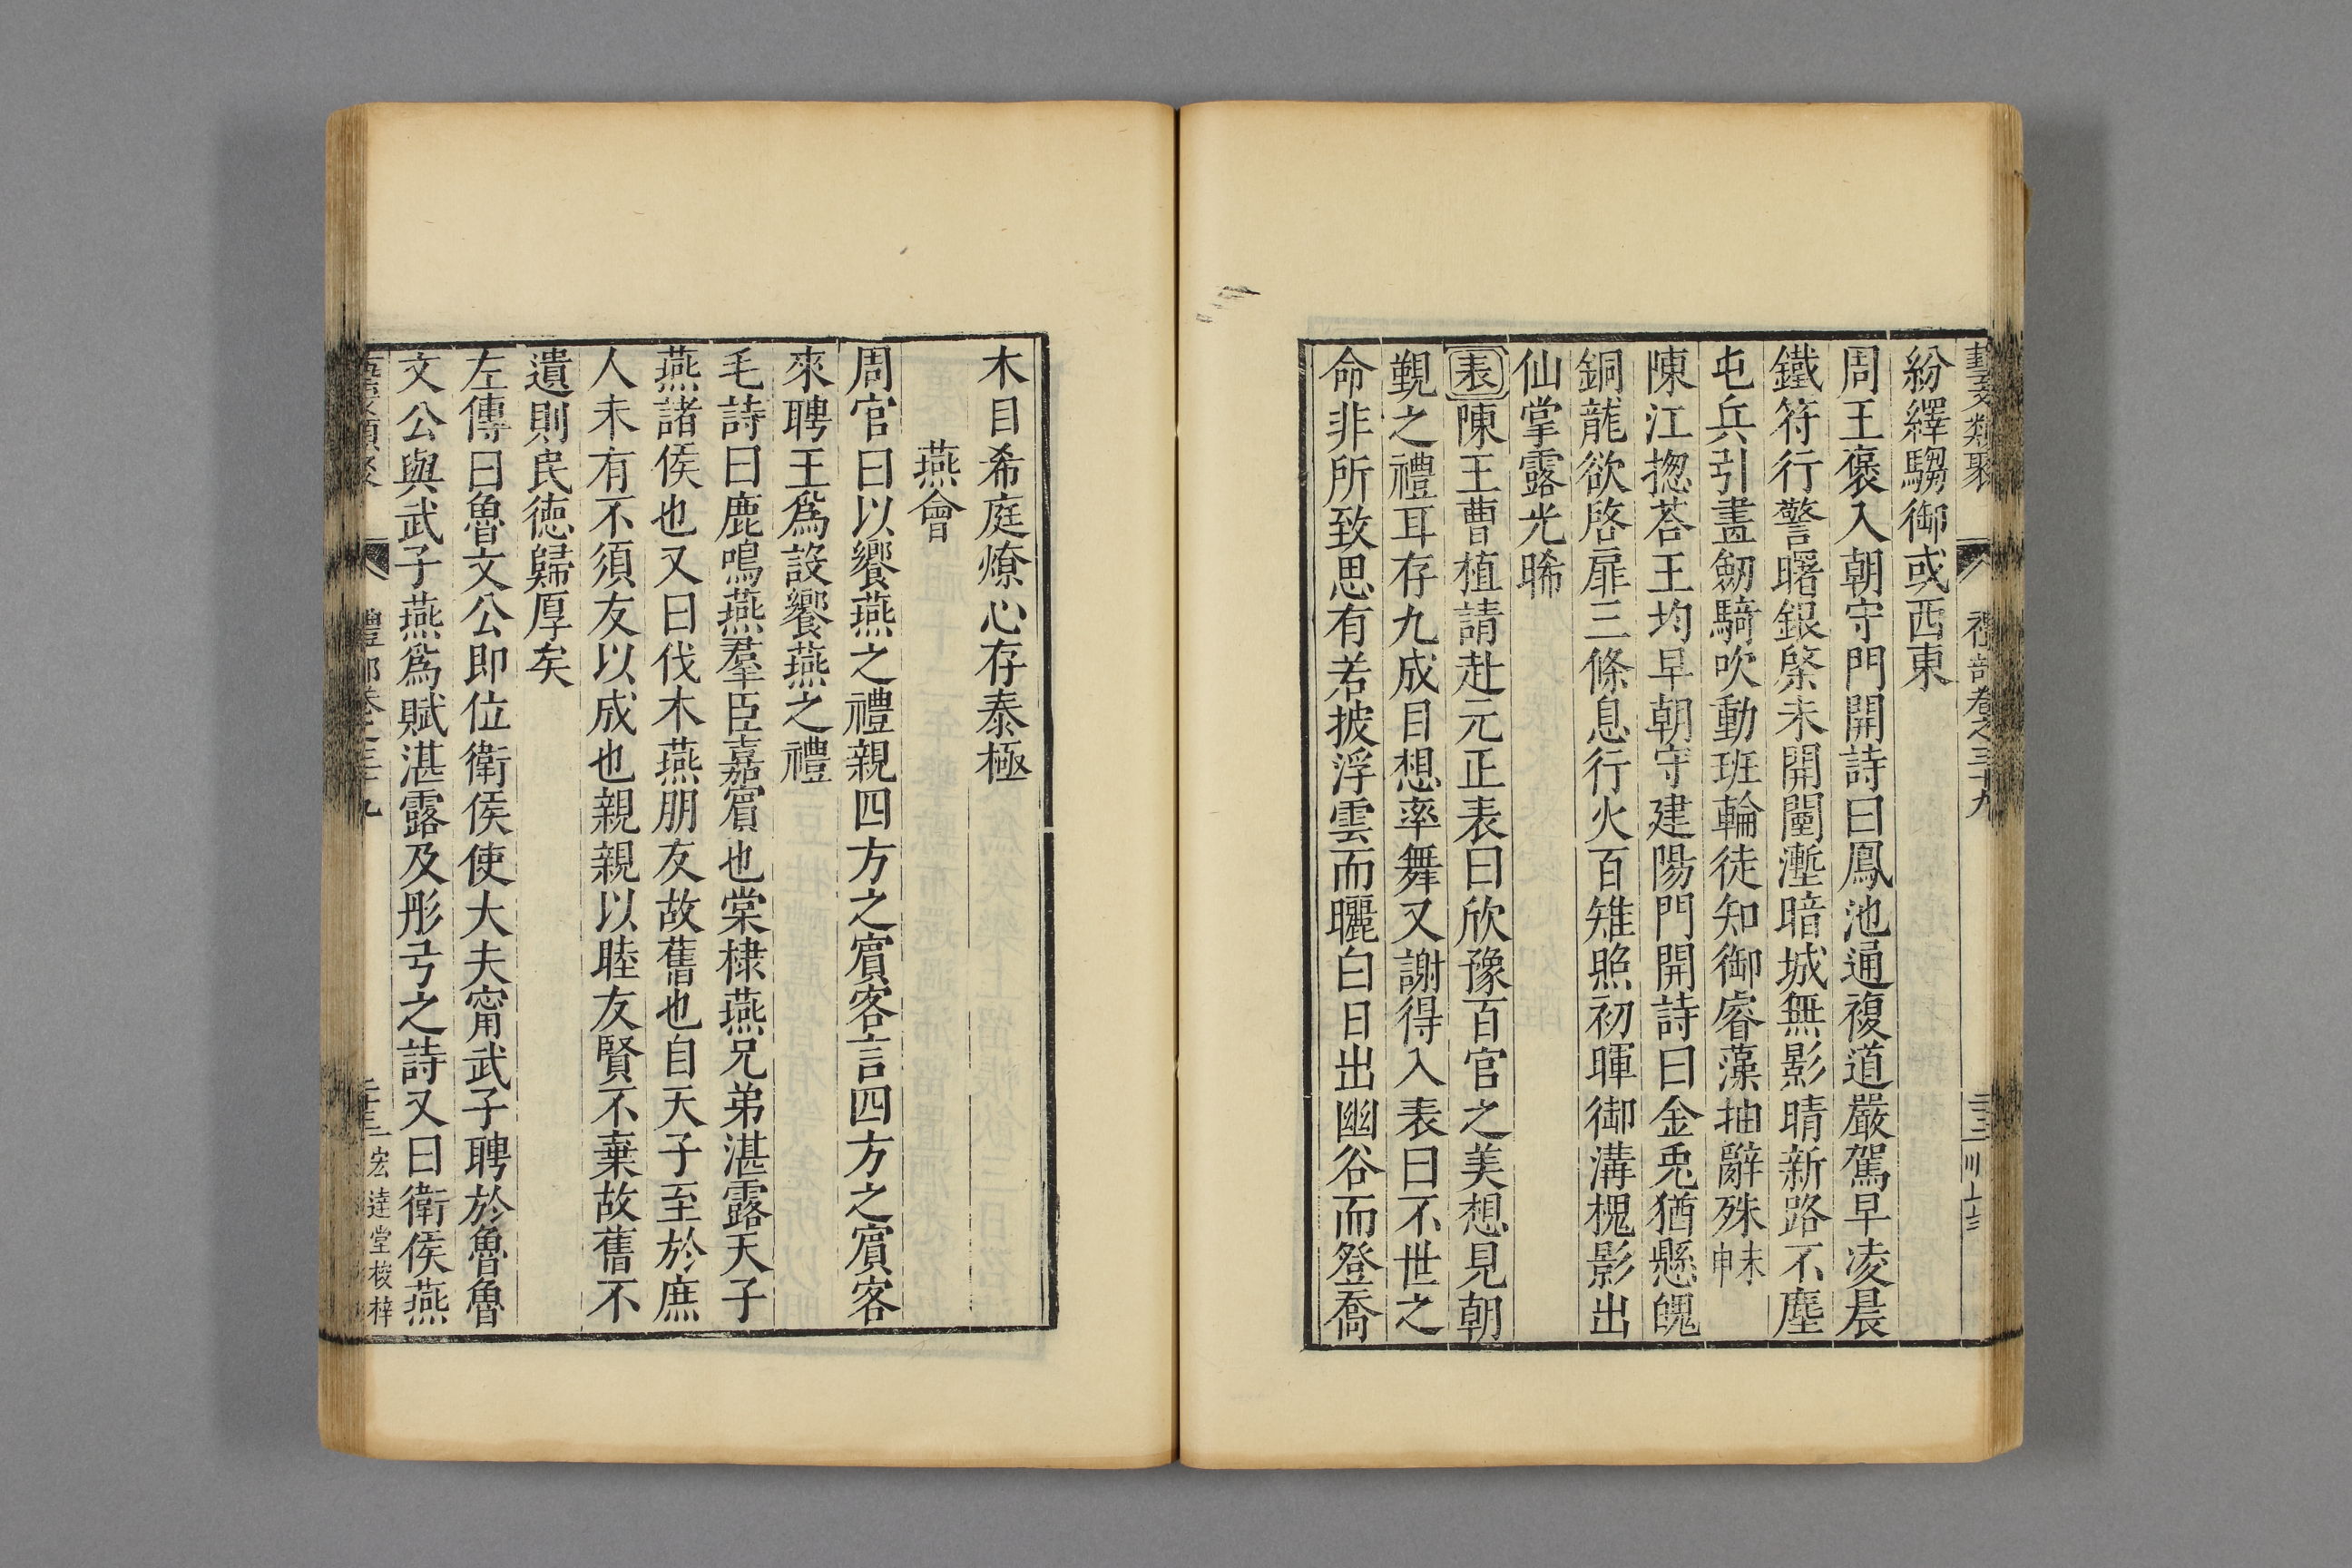 藝文類聚 禮部卷之三十九
紛繹騶御或西東
周王褒入朝守門開詩曰鳳池通複道嚴駕早凌晨
鐵符行警曙銀棨未開闉漸暗城無影晴新路不塵
屯兵引畫劒騎吹動班輪徒知御睿藻抽辭殊未申
陳江揔荅王均早朝守建陽門開詩曰金兎猶懸魄
銅龍欲啓扉三條息行火百雉照初暉御溝槐影出
仙掌露光晞
表陳王曹植請赴元正表曰欣豫百官之美想見朝
覲之禮耳存九成目想率舞又謝得入表曰不世之
命非所致思有若披浮雲而曬白日出幽谷而登喬
木目希庭燎心存泰極
燕會
周官曰以饗燕之禮親四方之賔客言四方之賔客
來聘王爲設饗燕之禮
毛詩曰鹿鳴燕羣臣嘉賔也棠棣燕兄弟湛露天子
燕諸侯也又曰伐木燕朋友故舊也自天子至於庶
人未有不須友以成也親親以睦友賢不棄故舊不
遺則民徳歸厚矣
左傳曰魯文公即位衛侯使大夫甯武子聘於魯魯
文公與武子燕爲賦湛露及彤弓之詩又曰衛侯燕
宏達堂梭梓